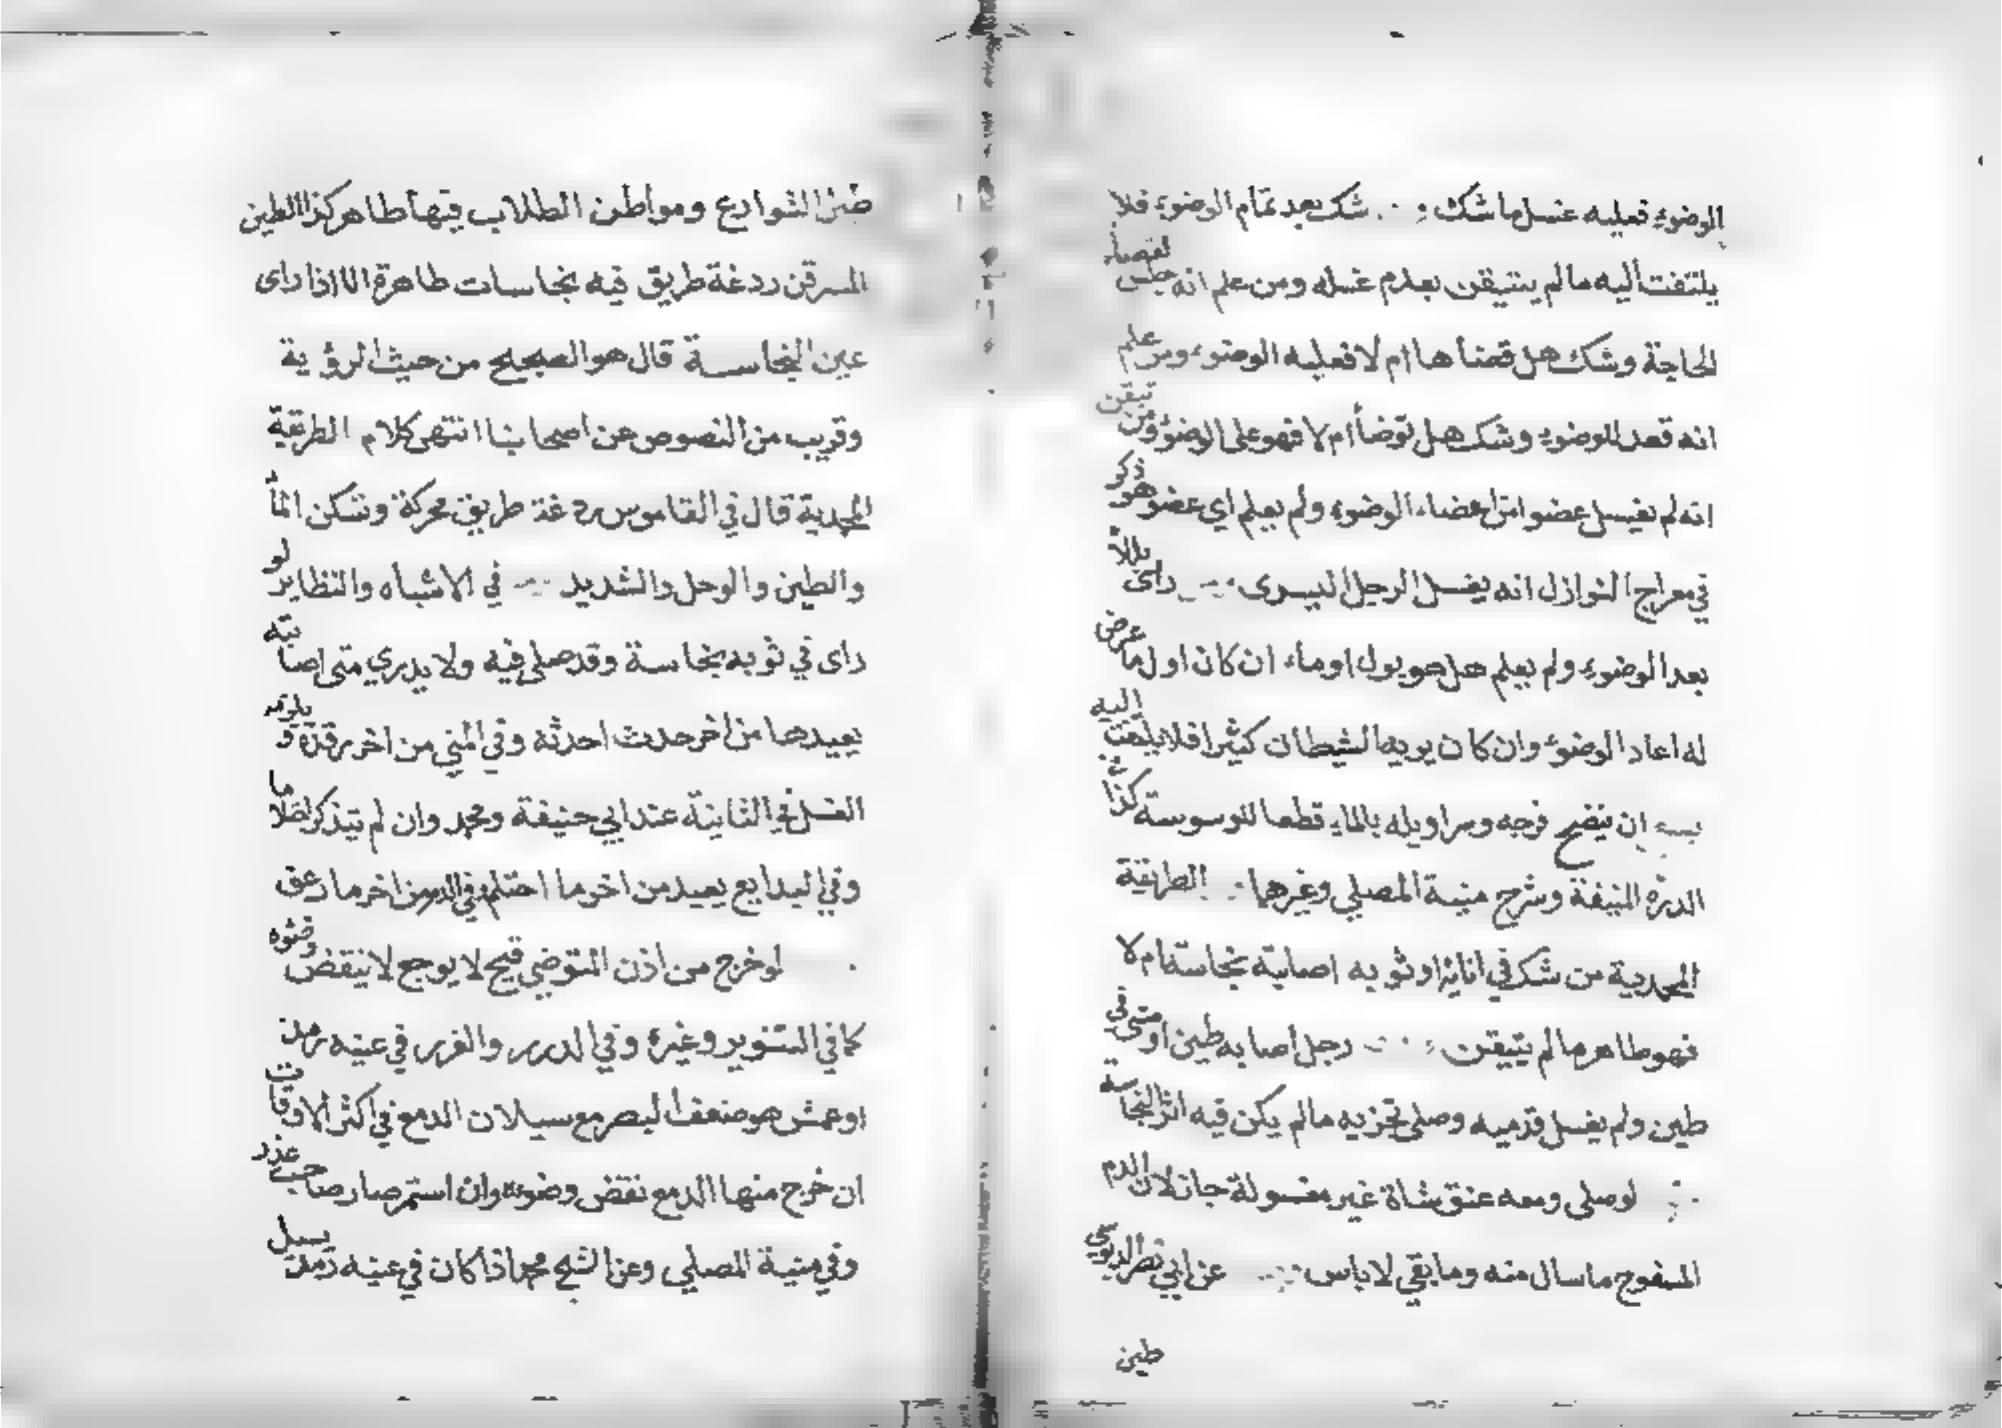 الوضوء فعليه غسل ما شك شك بعد تمام الوضوء فلا
يلتفت اليه مالم يتيقن بعدم غسله ومن علم انه جلس لقضاء
الحاجة وشك هل قضاها ام لا فعليه الوضوء ومن علم
انه قعد للوضوء وشك هل توضأ ام لا فهو على الوضوء ومن تيقن
انه لم يغسل عضوا من اعضاء الوضوء ولم يعلم اي عضو هو ذكر
في معراج النوازل انه يغسل الرجل اليسرى راى بللا
بعد الوضوء ولم يعلم هل هو بول او ماء ان كان اول ما عرض
له اعاد الوضوء وان كان يريه الشيطان كثيرا فلا يلتفت اليه
ان ينضح فرجه وسراويله بالماء قطعا للوسوسة كذا في
الدرة المنيفة وشرح منية المصلي وغيرهما الطريقة
المحمدية من شك في انائه او ثوبه اصابته نجاسة ام لا
فهو طاهر مالم يتيقن رجل اصابه طين او مشى في
طين ولم يغسل قدميه وصلى تجزيه مالم يكن فيه اثر النجاسة
لو صلى ومعه عنق شاة غير مغسولة جاز لان الدم
المسفوح ما سال منه وما بقي لا باس عن ابي نصر الدبوسي
طين
طين الشوارع ومواطن الطلاب فيها طاهر كذا الطين
المسرقن ردغة طريق فيه نجاسات طاهرة الا اذا راى
عين النجاسة قال هو الصحيح من حيث الرؤية
وقريب من النصوص عن اصحابنا انتهى كلام الطريقة
المحمدية قال في القاموس ردغة طريق محركة وتسكن الماء
والطين والوحل والشديد في الاشباه والنظاير لو
راى في ثوبه نجاسة وقد صلى فيه ولا يدري متى اصابته
يعيدها من اخر حدث احدثه وفي المني من اخر رقدة ويلزمه
الغسل في الثانية عند ابي حنيفة ومحمد وان لم يتذكر احتلاما
وفي البدايع يعيد من اخر ما احتلم وفي الدم من اخر ما رعف
لو خرج من اذن المتوضي قيح لا يوجع لا ينقض وضوءه
كما في التنوير وغيره وفي الدرر والغرر في عينه رمد
او عمش هو ضعف البصر مع سيلان الدمع في اكثر الاوقات
ان خرج منها الدمع نقض وضوءه وان استمر صار صاحب عذر
وفي منية المصلي وعن الشيخ محمد اذا كان في عينه رمد يسيل